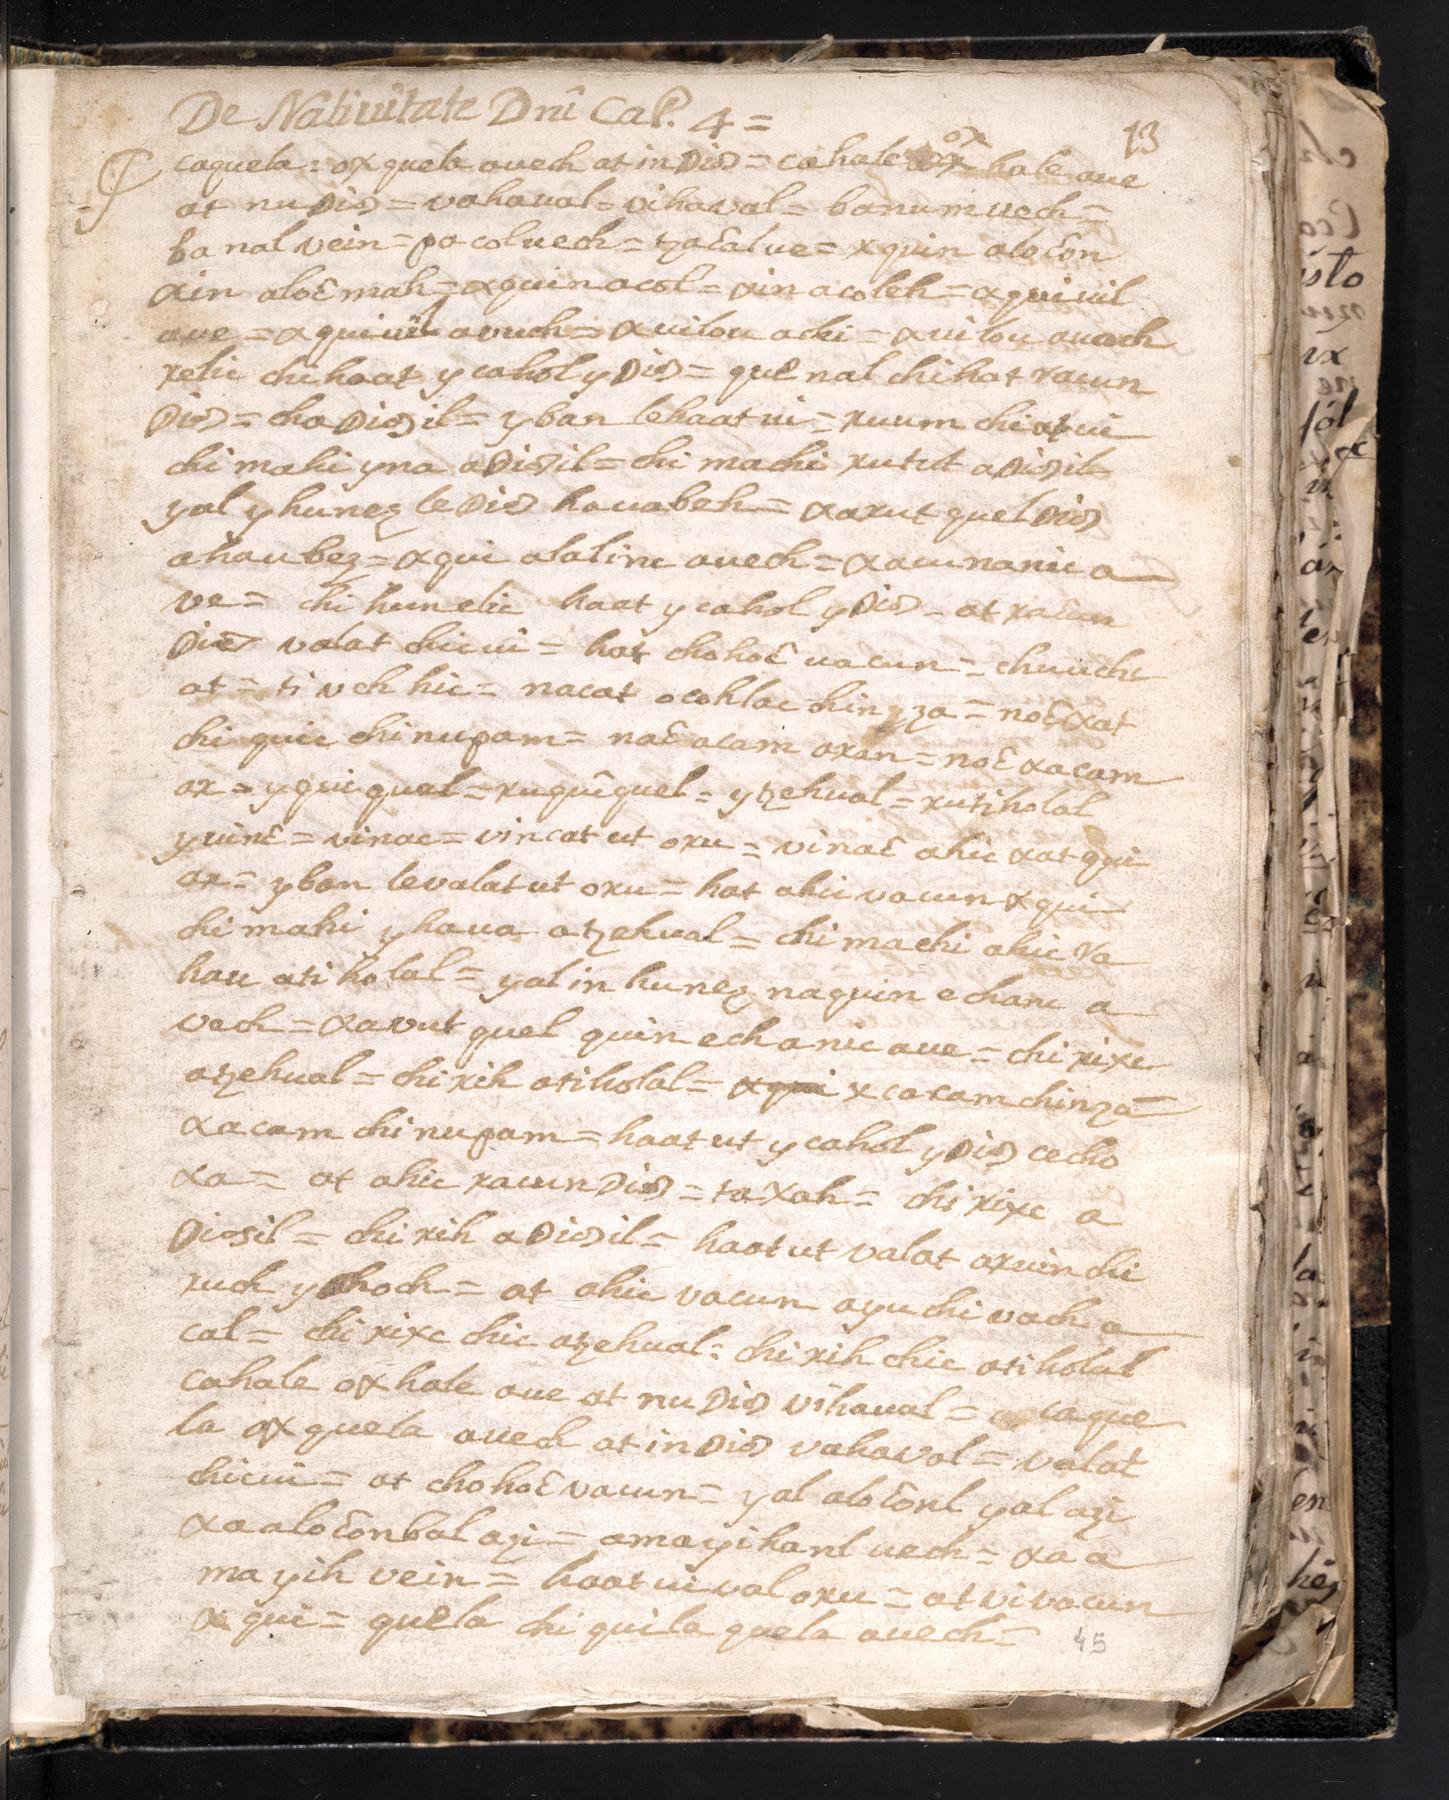 De Natiuitate Dnî Cap. 4 =
13
caquela : ox quela auech at in Dios = cahale ox hale aue
at nu Dios = vahaual = vihaval = banum uech =
ba nal vein = pa coluech = tza cal ue = xquin aloc̃on
xin aloc̃ mah = xquin acol = xin acoleh = xqui uil
aue = xqui uil auuch = xuilou achi = xuilou auech
relic chi haat y cahol y Dios = quê nal chi hat racun
Dios = cha Diosil = y ban lehaat ui = ruum chi at ui
chi mahi yna a Diosil = chi machi rutut a Diosil
yal y hunez le Dios hauabeh = xarut quel Dios
ahaubez = xqui alalinc auech = xacunanic a
ve = chi hun elic haat y cahol y Dios = at racun
Dios valat chicui = hat chohoc̃ uacun = chuuchi
at = ti vch hic = nacat ocohlac chin zza = noc̃ xat
chi quic chi nupam = nac̃ acam oxan = noc̃ xacam
ar = y qui quel = ruquîquel = y tzehual = rutiholal
yuinc̃ = vinac = vincat ut oxu = vinac̃ ahic xat qui
ar = y ban le valat ut oxu = hat ahic vacun xqui
chi mahi y haua atzehual = chi machi ahic va
hau atiholal = yal in hunez naquin echanc a
vech = xavut quel quin echanic aue = chi rixc
atzehual = chi rih atiholal = xcacam chinza
xacam chi nupam = haat ut y cahol y Dios cecho
xa = at ahic racun Dios = ta xah = chi rixc a
Diosil = chi rih a Diosil = haat ut valat arvin chi
ruch y choch = at ahic vacun ayu chi vach a
cal = chi rixc chic atzehual : chi rih chic atiholal
cahale ox hale aue at nu Dios vihaual = caque
la ox quela auech at in Dios vahaval = valat
chicui = at chohoc̃ vacun = yal aloc̃onl yal azi
xa aloc̃onbal azi = amayihanl uech = xa a
mayih vein = haat ui val oxu = at vi vacun
xqui = quela chi quila quela auech =
45